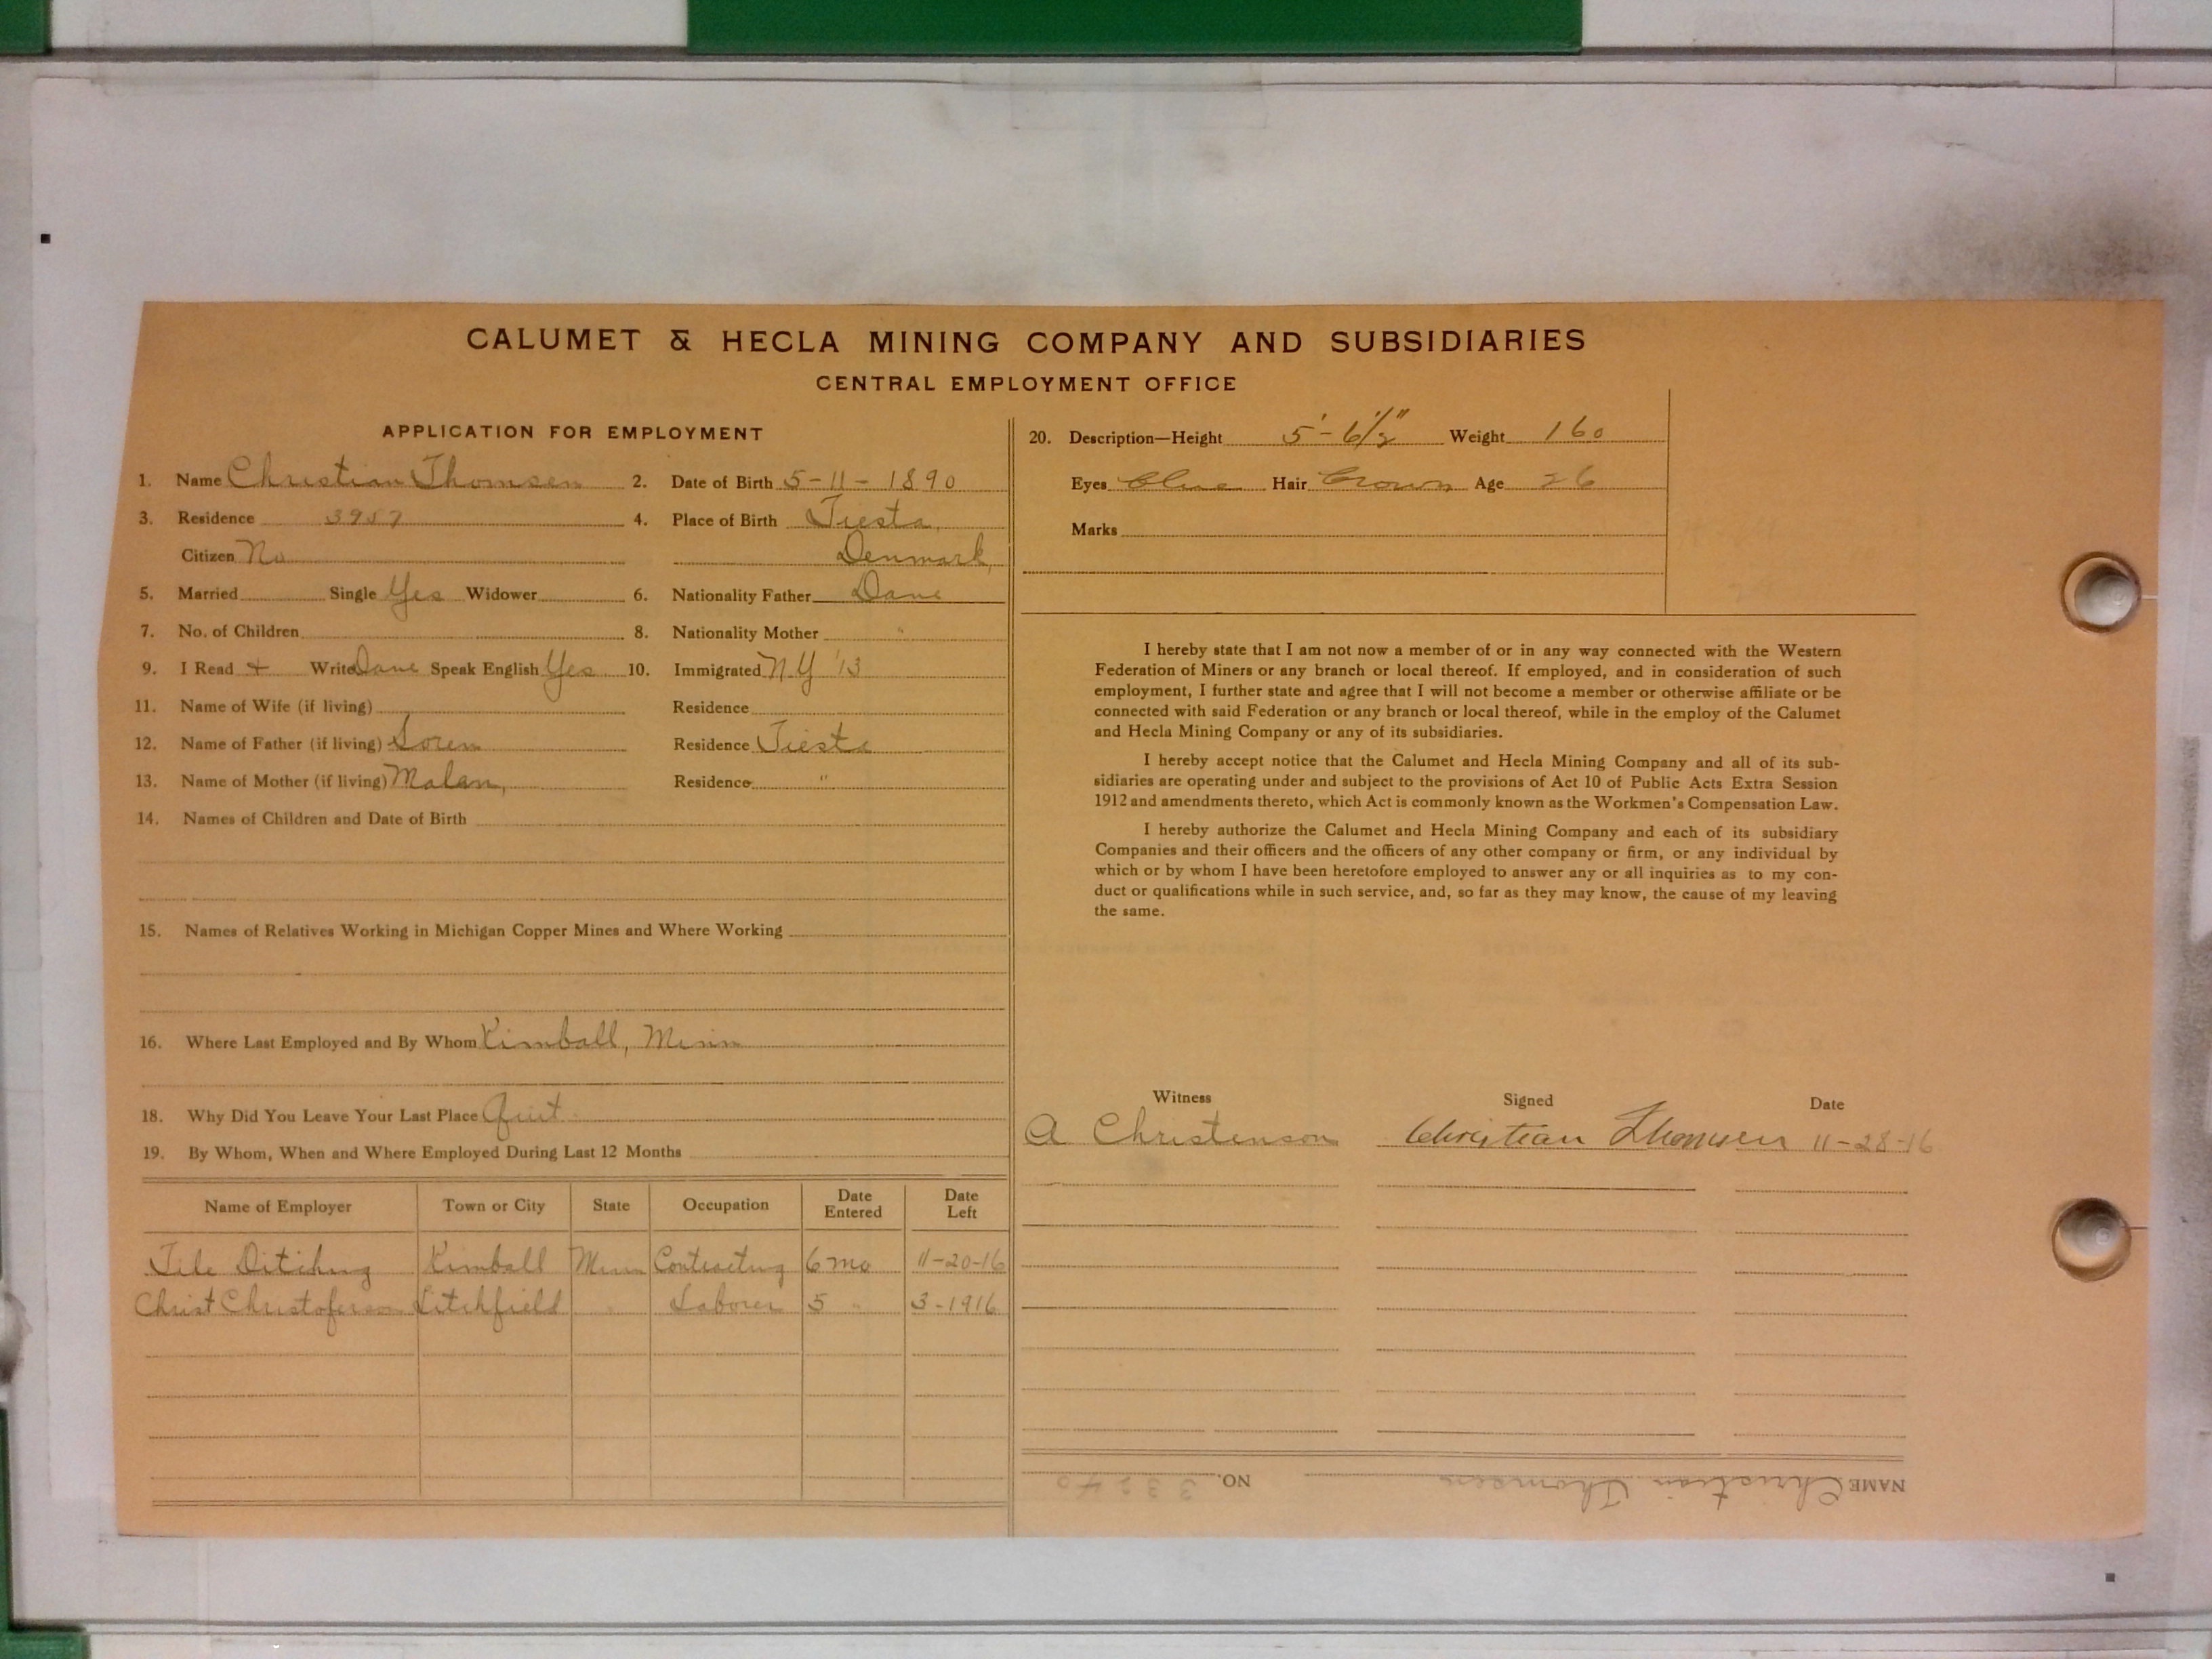 CALUMET & HECLA MINING COMPANY AND SUBSIDIARIES
CENTRAL EMPLOYMENT OFFICE
APPLICATION FOR EMPLOYMENT
1. Name Christian Thomsen 2. Date of Birth 5-11-1890
3. Residence 3957 4. Place of Birth Tiesta,
Citizen No Denmark,
5. Married Single Yes Widower 6. Nationality Father Dane
7. No. of Children 8. Nationality Mother "
9. I Read + Write Dane Speak English Yes 10. Immigrated NY '13
11. Name of Wife (if living) Residence
12. Name of Father (if living) Soren Residence Tiesta
13. Name of Mother (if living) Malan, Residence "
14. Names of Children and Date of Birth
15. Names of Relatives Working in Michigan Copper Mines and Where Working
16. Where Last Employed and By Whom Kimball, Minn
18. Why Did You Leave Your Last Place Quit
19. By Whom, When and Where Employed During Last 12 Months
Name of Employer Town or City State Occupation Date Entered Date Left
Tile Ditching Kimball Minn Contracting 6 mo 11-20-16
Christ Christoferson Litchfield " Laborer 5 " 3-1916
20. Description—Height 5'-6½" Weight 160
Eyes Blue Hair Brown Age 26
Marks
I hereby state that I am not now a member of or in any way connected with the Western
Federation of Miners or any branch or local thereof. If employed, and in consideration of such
employment, I further state and agree that I will not become a member or otherwise affiliate or be
connected with said Federation or any branch or local thereof, while in the employ of the Calumet
and Hecla Mining Company or any of its subsidiaries.
I hereby accept notice that the Calumet and Hecla Mining Company and all of its sub-
sidiaries are operating under and subject to the provisions of Act 10 of Public Acts Extra Session
1912 and amendments thereto, which Act is commonly known as the Workmen's Compensation Law.
I hereby authorize the Calumet and Hecla Mining Company and each of its subsidiary
Companies and their officers and the officers of any other company or firm, or any individual by
which or by whom I have been heretofore employed to answer any or all inquiries as to my con-
duct or qualifications while in such service, and, so far as they may know, the cause of my leaving
the same.
Witness Signed Date
A Christenson Christian Thomsen 11-28-16
NAME Christian Thomsen NO. 33240